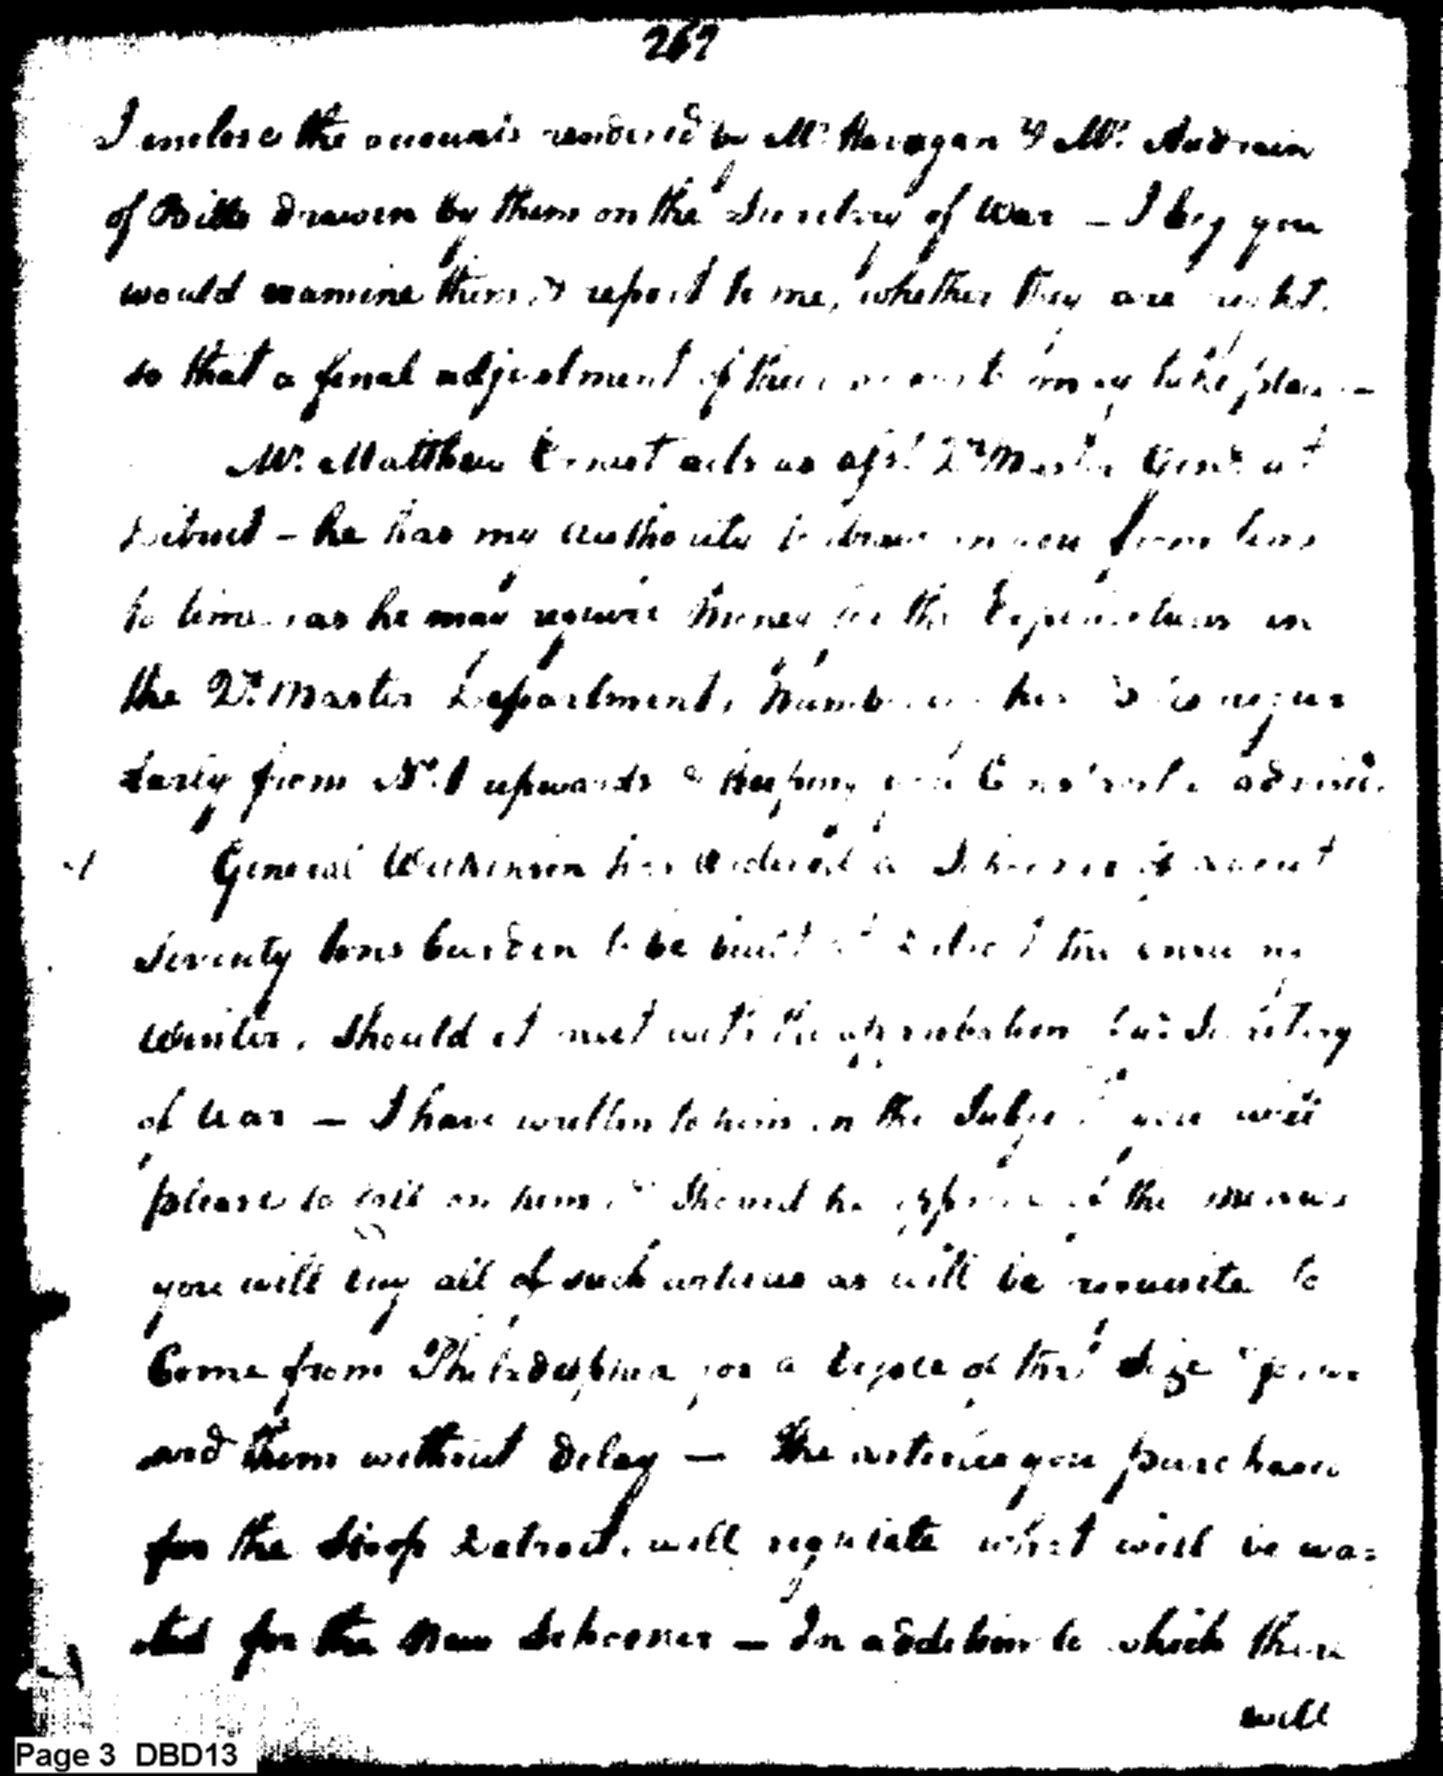 267
I enclose the accounts rendered by Mr & Mr. Audrain
of Bills drawn by them on the Secretary of War — I beg you
would examine them, & report to me, whether they are right,
so that a final adjustment of their accounts may take place —
Mr. Matthew Ernest acts as Qr Master Genl at
Detroit — he has my authority to draw on you from time
to time as he may require Money for the Expenditures in
the Qr. Master Department, his regu
larly from No. 1 upwards & keeping you
General Wilkinson has ordered a Schooner of about
Seventy tons burden to be built at Detroit the ensuing
Winter, should it meet with the approbation Secretary
of War — I have written to him on the Subject you will
please to call on him, & should he approve of the measure
you will buy all of such articles as will be requisite to
Come from Philadelphia for a of that Size &
and them without delay — the articles you purchased
for the Sloop Detroit, will regulate what will be wa=
nted for the New Schooner — In addition to which there
will
Page 3 DBD13